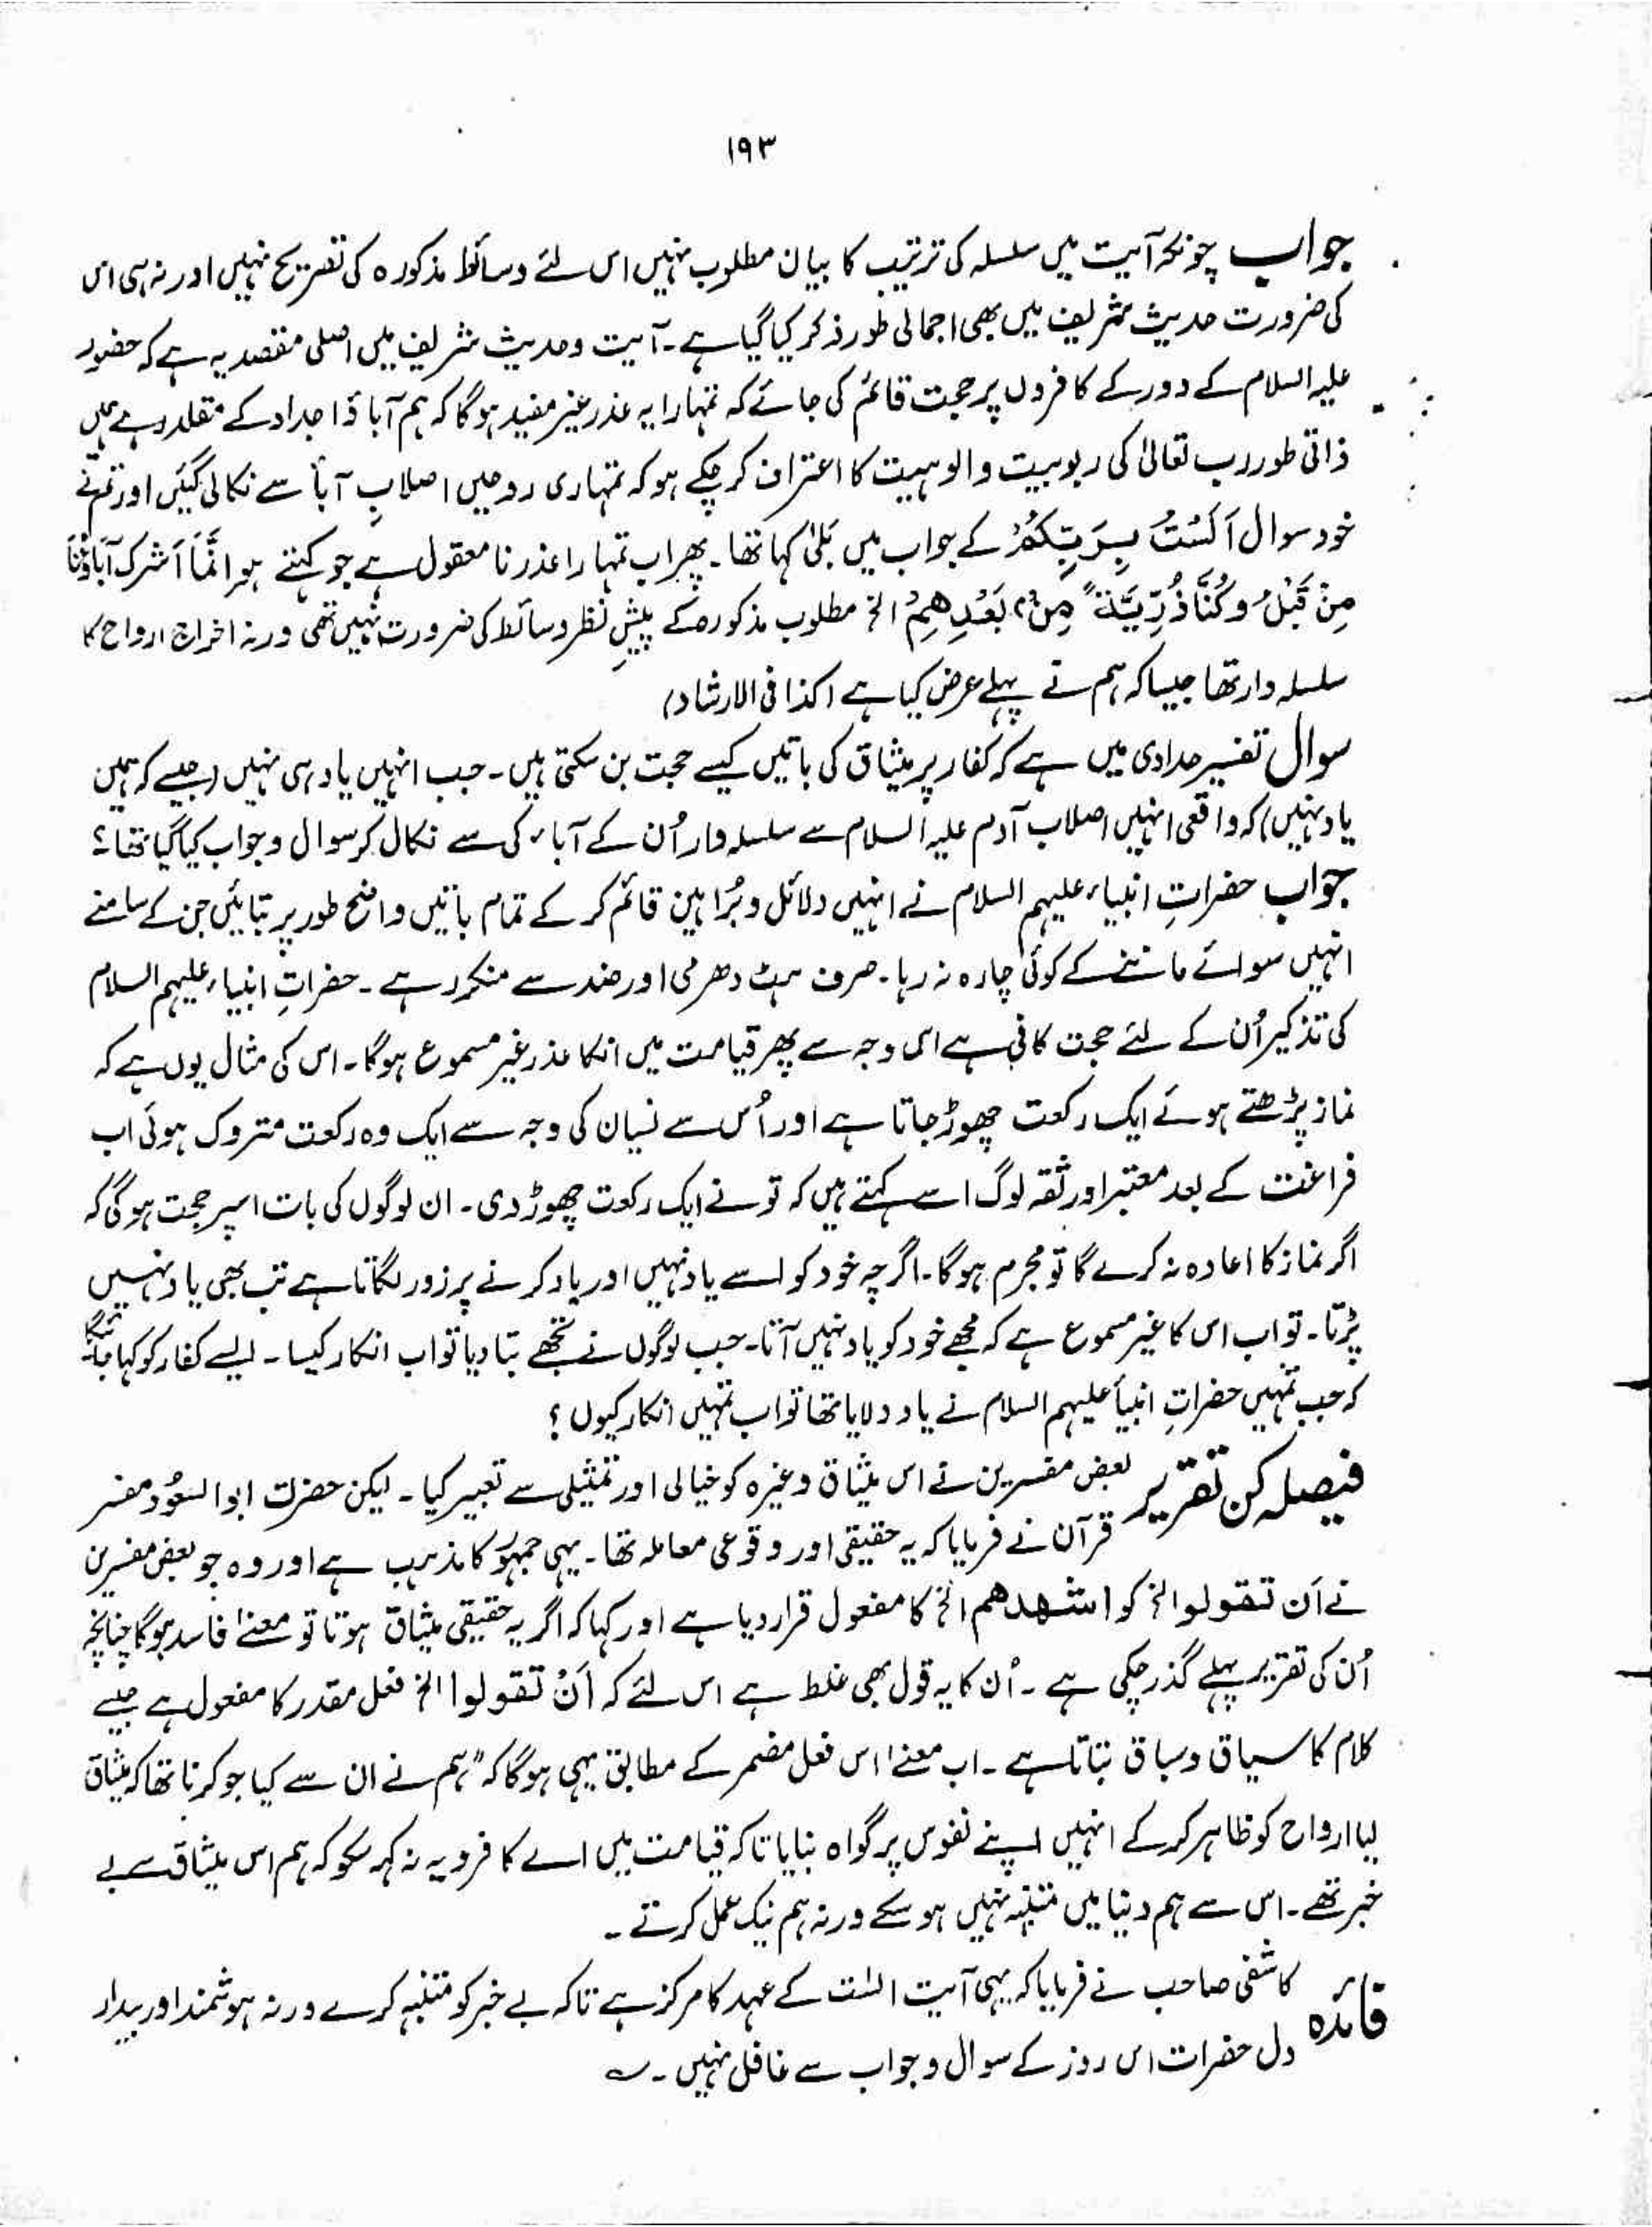 ۱۹۳
جواب چونکہ آیت میں سلسلہ کی ترتیب کا بیان مطلوب نہیں اس لئے وسائط مذکورہ کی تصریح نہیں اور نہ ہی اس
کی ضرورت حدیث شریف میں بھی اجمالی طور ذکر کیا گیا ہے۔ آیت وحدیث شریف میں اصلی مقصد یہ ہے کہ حضور
علیہ السلام کے دور کے کافروں پر حجت قائم کی جائے کہ تمہارا یہ عذر غیر مفید ہوگا کہ ہم آباؤ اجداد کے مقلد رہے ہیں
ذاتی طور رب تعالیٰ کی ربوبیت والوہیت کا اعتراف کر چکے ہو کہ تمہاری روحیں اصلابِ آبأ سے نکالی گئیں اور تم نے
خود سوال اَلَسْتُ بِرَبِّکُمْ کے جواب میں بَلیٰ کہا تھا۔ پھر اب تمہارا عذر نا معقول ہے جو کہتے ہو اِنَّمَا اَشْرَکَ آبَاؤُنَا
مِنْ قَبْلُ وکُنَّا ذُرِّیَّۃً مِنْ، بَعْدِھِمْ الخ مطلوب مذکورہ کے پیشِ نظر وسائط کی ضرورت نہیں تھی ورنہ اخراج ارواح کا
سلسلہ وار تھا جیسا کہ ہم نے پہلے عرض کیا ہے (کذا فی الارشاد)
سوال تفسیر حدادی میں ہے کہ کفار پر میثاق کی باتیں کیسے حجت بن سکتی ہیں۔ جب انہیں یاد ہی نہیں (جیسے کہ ہمیں
یاد نہیں) کہ واقعی انہیں اصلاب آدم علیہ السلام سے سلسلہ وار اُن کے آباء کی سے نکال کر سوال وجواب کیا گیا تھا؟
جواب حضراتِ انبیاء علیہم السلام نے انہیں دلائل و بُراہین قائم کر کے تمام باتیں واضح طور پر بتائیں جن کے سامنے
انہیں سوائے ماننے کے کوئی چارہ نہ رہا۔ صرف ہٹ دھرمی اور ضد سے منکر رہے۔ حضراتِ انبیاء علیہم السلام
کی تذکیر اُن کے لئے حجت کافی ہے اسی وجہ سے پھر قیامت میں انکا عذر غیر مسموع ہوگا۔ اس کی مثال یوں ہے کہ
نماز پڑھتے ہوئے ایک رکعت چھوڑ جاتا ہے اور اُس سے نسیان کی وجہ سے ایک وہ رکعت متروک ہوئی اب
فراغت کے بعد معتبر اور ثقہ لوگ اسے کہتے ہیں کہ تو نے ایک رکعت چھوڑ دی۔ ان لوگوں کی بات اسپر حجت ہوگی کہ
اگر نماز کا اعادہ نہ کرے گا تو مجرم ہوگا۔ اگرچہ خود کو اسے یاد نہیں اور یاد کرنے پر زور لگاتا ہے تب بھی یاد نہیں
پڑتا۔ تو اب اس کا غیر مسموع ہے کہ مجھے خود کو یاد نہیں آتا۔ جب لوگوں نے تجھے بتا دیا تو اب انکار کیسا۔ ایسے کفار کو کہا جائیگا
کہ جب تمہیں حضراتِ انبیأ علیہم السلام نے یاد دلایا تھا تو اب تمہیں انکار کیوں؟
فیصلہ کن تقریر بعض مفسرین نے اس میثاق وغیرہ کو خیالی اور تمثیلی سے تعبیر کیا۔ لیکن حضرت ابوالسعُود مفسر
قرآن نے فرمایا کہ یہ حقیقی اور وقوعی معاملہ تھا۔ یہی جمہور کا مذہب ہے اور وہ جو بعض مفسرین
نے اَن تقولوا الخ کو اشھدھم الخ کا مفعول قرار دیا ہے اور کہا کہ اگر یہ حقیقی میثاق ہوتا تو معنےٰ فاسد ہوگا چنانچہ
اُن کی تقریر پہلے گذر چکی ہے۔ اُن کا یہ قول بھی غلط ہے اس لئے کہ اَنْ تقولوا الخ فعل مقدر کا مفعول ہے جیسے
کلام کا سیاق وسباق بتاتا ہے۔ اب معنےٰ اس فعل مضمر کے مطابق یہی ہوگا کہ "ہم نے ان سے کیا جو کرنا تھا کہ میثاق
لیا ارواح کو ظاہر کر کے انہیں اپنے نفوس پر گواہ بنایا تاکہ قیامت میں اے کافرو یہ نہ کہہ سکو کہ ہم اس میثاق سے بے
خبر تھے۔ اس سے ہم دنیا میں متنبہ نہیں ہو سکے ورنہ ہم نیک عمل کرتے۔
فائدہ کاشفی صاحب نے فرمایا کہ یہی آیت الست کے عہد کا مرکز ہے تاکہ بے خبر کو متنبہ کرے ورنہ ہوشمند اور بیدار
دل حضرات اس روز کے سوال وجواب سے غافل نہیں۔ ؎